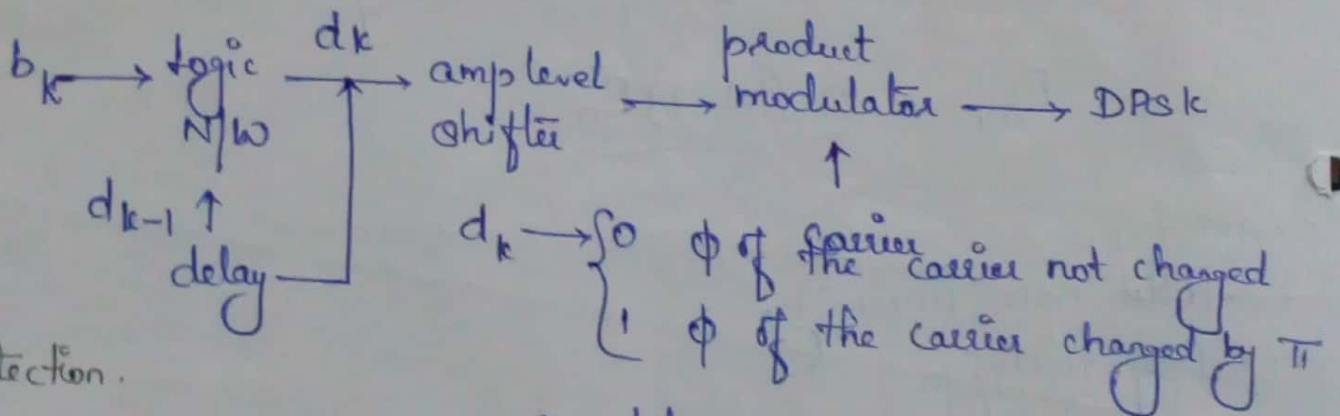 b_k → logic N/W → d_k → amp level shifter → product modulator → DPSK
d_{k-1} ↑
delay
carrier
d_k → { 0 φ of the carrier not changed
1 φ of the carrier changed by π
tection.